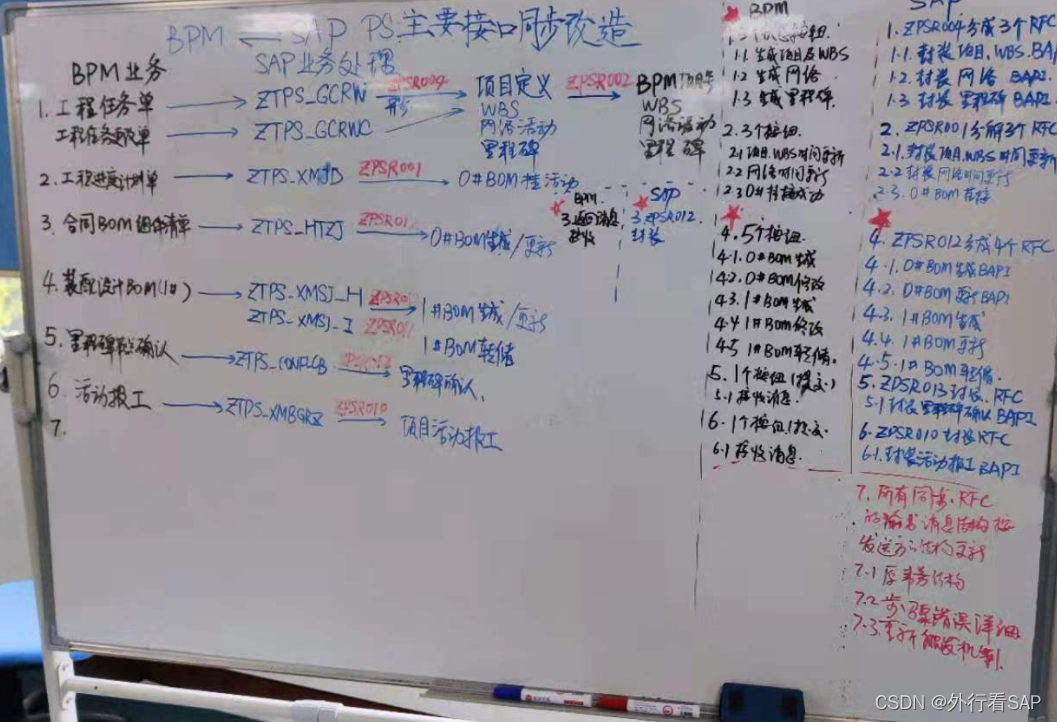 BPM ⟵ SAP PS 主要接口同步改造
BPM业务
SAP业务处理
1. 工程任务单 → ZTPS_GCRW ZPSR004 → 项目定义 ZPSR002 → BPM项目号
WBS WBS
工程任务变更单 → ZTPS_GCRWC 网络活动 网络活动
里程碑 里程碑
2. 工程进度计划单 → ZTPS_XMJD ZPSR001 → 0#BOM挂活动
3. 合同BOM组件清单 → ZTPS_HTZJ ZPSR01 → 0#BOM生成/更新
4. 装配设计BOM(1#) → ZTPS_XMSJ_H ZPSR01 → 1#BOM生成/更新
ZTPS_XMSJ_I ZPSR011 1#BOM转储
5. 里程碑确认 → → 里程碑确认.
6. 活动报工 → ZTPS_XMBGRZ ZPSR010 → 项目活动报工
7.
BPM.
3.返回消息
接收
SAP
3.ZPSR012.
封装
BPM
1.1 生成项目及WBS
1.2 生成网络
1.3 生成里程碑.
2. 3个按钮.
2.1 项目.WBS时间更新
2.2 网络时间更新
2.3 0#挂接成功
4. 5个按钮.
4.1. 0#BOM生成
4.2. 0#BOM修改
4.3. 1#BOM生成
4.4 1#BOM修改
4.5 1#BOM转储.
5. 1个按钮(提交)
5.1 接收消息.
6. 1个按钮(提交.
6.1 接收消息.
SAP
1. ZPSR004分成3个RFC
1.1. 封装项目.WBS.BA
1.2. 封装网络 BAPI.
1.3 封装里程碑BAPI
2. ZPSR001分解3个RFC
2.1. 封装项目.WBS时间更新
2.2 封装网络时间更新
2.3. 0#BOM挂接
4. ZPSR012分成4个RFC
4.1. 0#BOM生成BAPI
4.2. 0#BOM更新BAPI
4.3. 1#BOM生成
4.4. 1#BOM更新
4.5. 1#BOM转储.
5. ZPSR013封装.RFC
5.1 封装里程碑确认BAPI
6. ZPSR010封装RFC
6.1. 封装活动报工BAPI
7. 所有同步.RFC
的输出消息结构按
发送方结构更新
7.1 结构
7.2 步骤错误详细
7.3 触发机制.
CSDN @外行看SAP